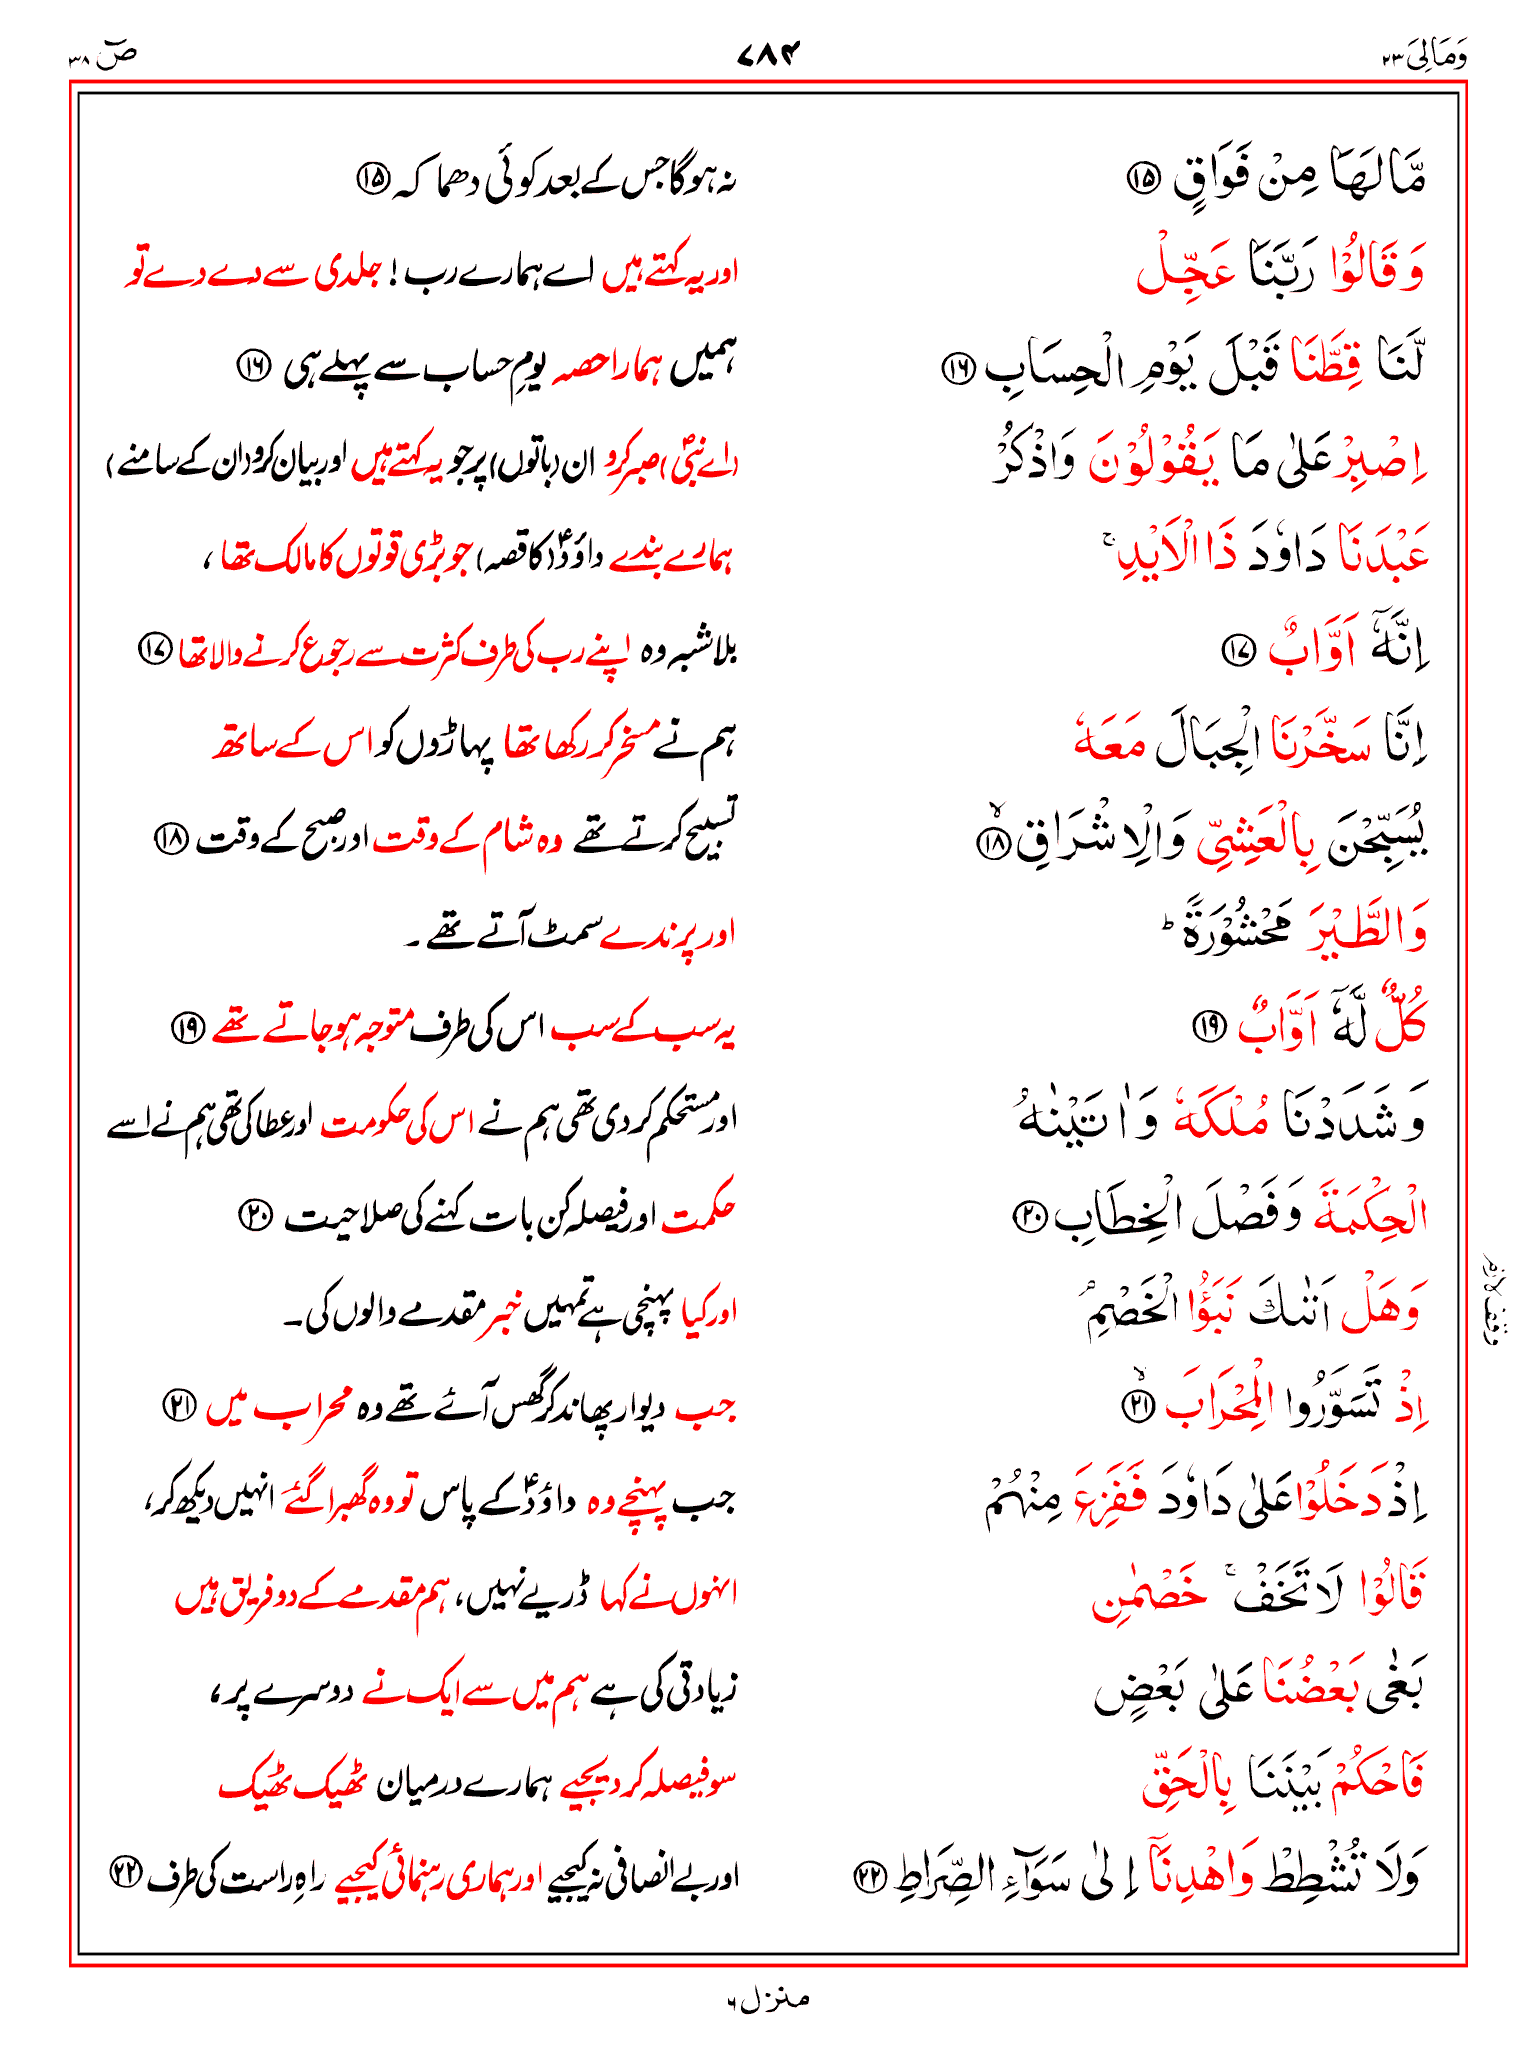 وَمَالِىَ ٢٣
٧٨٤
صٓ ٣٨
مَّا لَهَا مِنْ فَوَاقٍ ۝١٥ نہ ہوگا جس کے بعد کوئی دھماکہ ۝١٥
وَقَالُوْا رَبَّنَا عَجِّلْ اور یہ کہتے ہیں اے ہمارے رب! جلدی سے دے دے تو
لَّنَا قِطَّنَا قَبْلَ يَوْمِ الْحِسَابِ ۝١٦ ہمیں ہمارا حصہ یومِ حساب سے پہلے ہی ۝١٦
اِصْبِرْ عَلٰى مَا يَقُوْلُوْنَ وَاذْكُرْ (اے نبیؐ) صبر کرو ان (باتوں) پر جو یہ کہتے ہیں اور بیان کرو (ان کے سامنے)
عَبْدَنَا دَاوٗدَ ذَا الْاَيْدِ ۚ ہمارے بندے داؤدؑ (کا قصہ) جو بڑی قوتوں کا مالک تھا،
اِنَّهٗٓ اَوَّابٌ ۝١٧ بلاشبہ وہ اپنے رب کی طرف کثرت سے رجوع کرنے والا تھا ۝١٧
اِنَّا سَخَّرْنَا الْجِبَالَ مَعَهٗ ہم نے مسخر کر رکھا تھا پہاڑوں کو اس کے ساتھ
يُسَبِّحْنَ بِالْعَشِيِّ وَالْاِشْرَاقِ ۝١٨ۙ تسبیح کرتے تھے وہ شام کے وقت اور صبح کے وقت ۝١٨
وَالطَّيْرَ مَحْشُوْرَةً ؕ اور پرندے سمٹ آتے تھے۔
كُلٌّ لَّهٗٓ اَوَّابٌ ۝١٩ یہ سب کے سب اس کی طرف متوجہ ہو جاتے تھے ۝١٩
وَشَدَدْنَا مُلْكَهٗ وَاٰتَيْنٰهُ اور مستحکم کر دی تھی ہم نے اس کی حکومت اور عطا کی تھی ہم نے اسے
الْحِكْمَةَ وَفَصْلَ الْخِطَابِ ۝٢٠ حکمت اور فیصلہ کن بات کہنے کی صلاحیت ۝٢٠
وَهَلْ اَتٰىكَ نَبَؤُا الْخَصْمِ ۘ اور کیا پہنچی ہے تمہیں خبر مقدمے والوں کی۔
وقف لازم
اِذْ تَسَوَّرُوا الْمِحْرَابَ ۝٢١ۙ جب دیوار پھاند کر گھس آئے تھے وہ محراب میں ۝٢١
اِذْ دَخَلُوْا عَلٰى دَاوٗدَ فَفَزِعَ مِنْهُمْ جب پہنچے وہ داؤدؑ کے پاس تو وہ گھبرا گئے انہیں دیکھ کر،
قَالُوْا لَا تَخَفْ ۚ خَصْمٰنِ انہوں نے کہا ڈریے نہیں، ہم مقدمے کے دو فریق ہیں
بَغٰى بَعْضُنَا عَلٰى بَعْضٍ زیادتی کی ہے ہم میں سے ایک نے دوسرے پر،
فَاحْكُمْ بَيْنَنَا بِالْحَقِّ سو فیصلہ کر دیجیے ہمارے درمیان ٹھیک ٹھیک
وَلَا تُشْطِطْ وَاهْدِنَآ اِلٰى سَوَآءِ الصِّرَاطِ ۝٢٢ اور بے انصافی نہ کیجیے اور ہماری رہنمائی کیجیے راہِ راست کی طرف ۝٢٢
منزل ٦